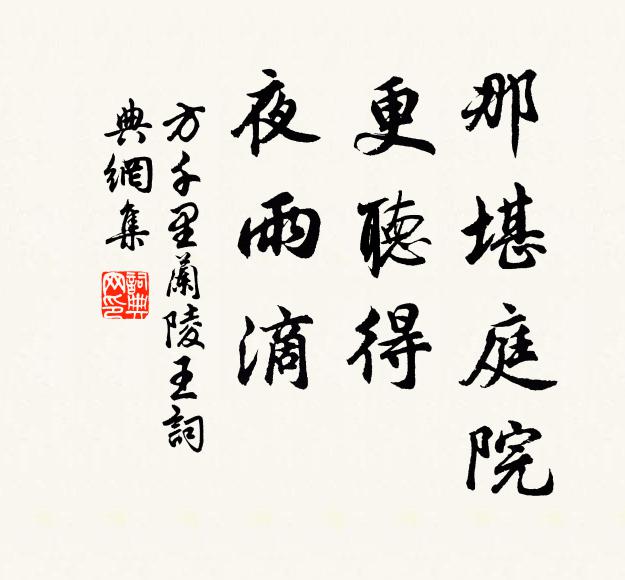 那堪庭院
更聽得
夜雨滴
方千里蘭陵王詞
典網集
詞典網印